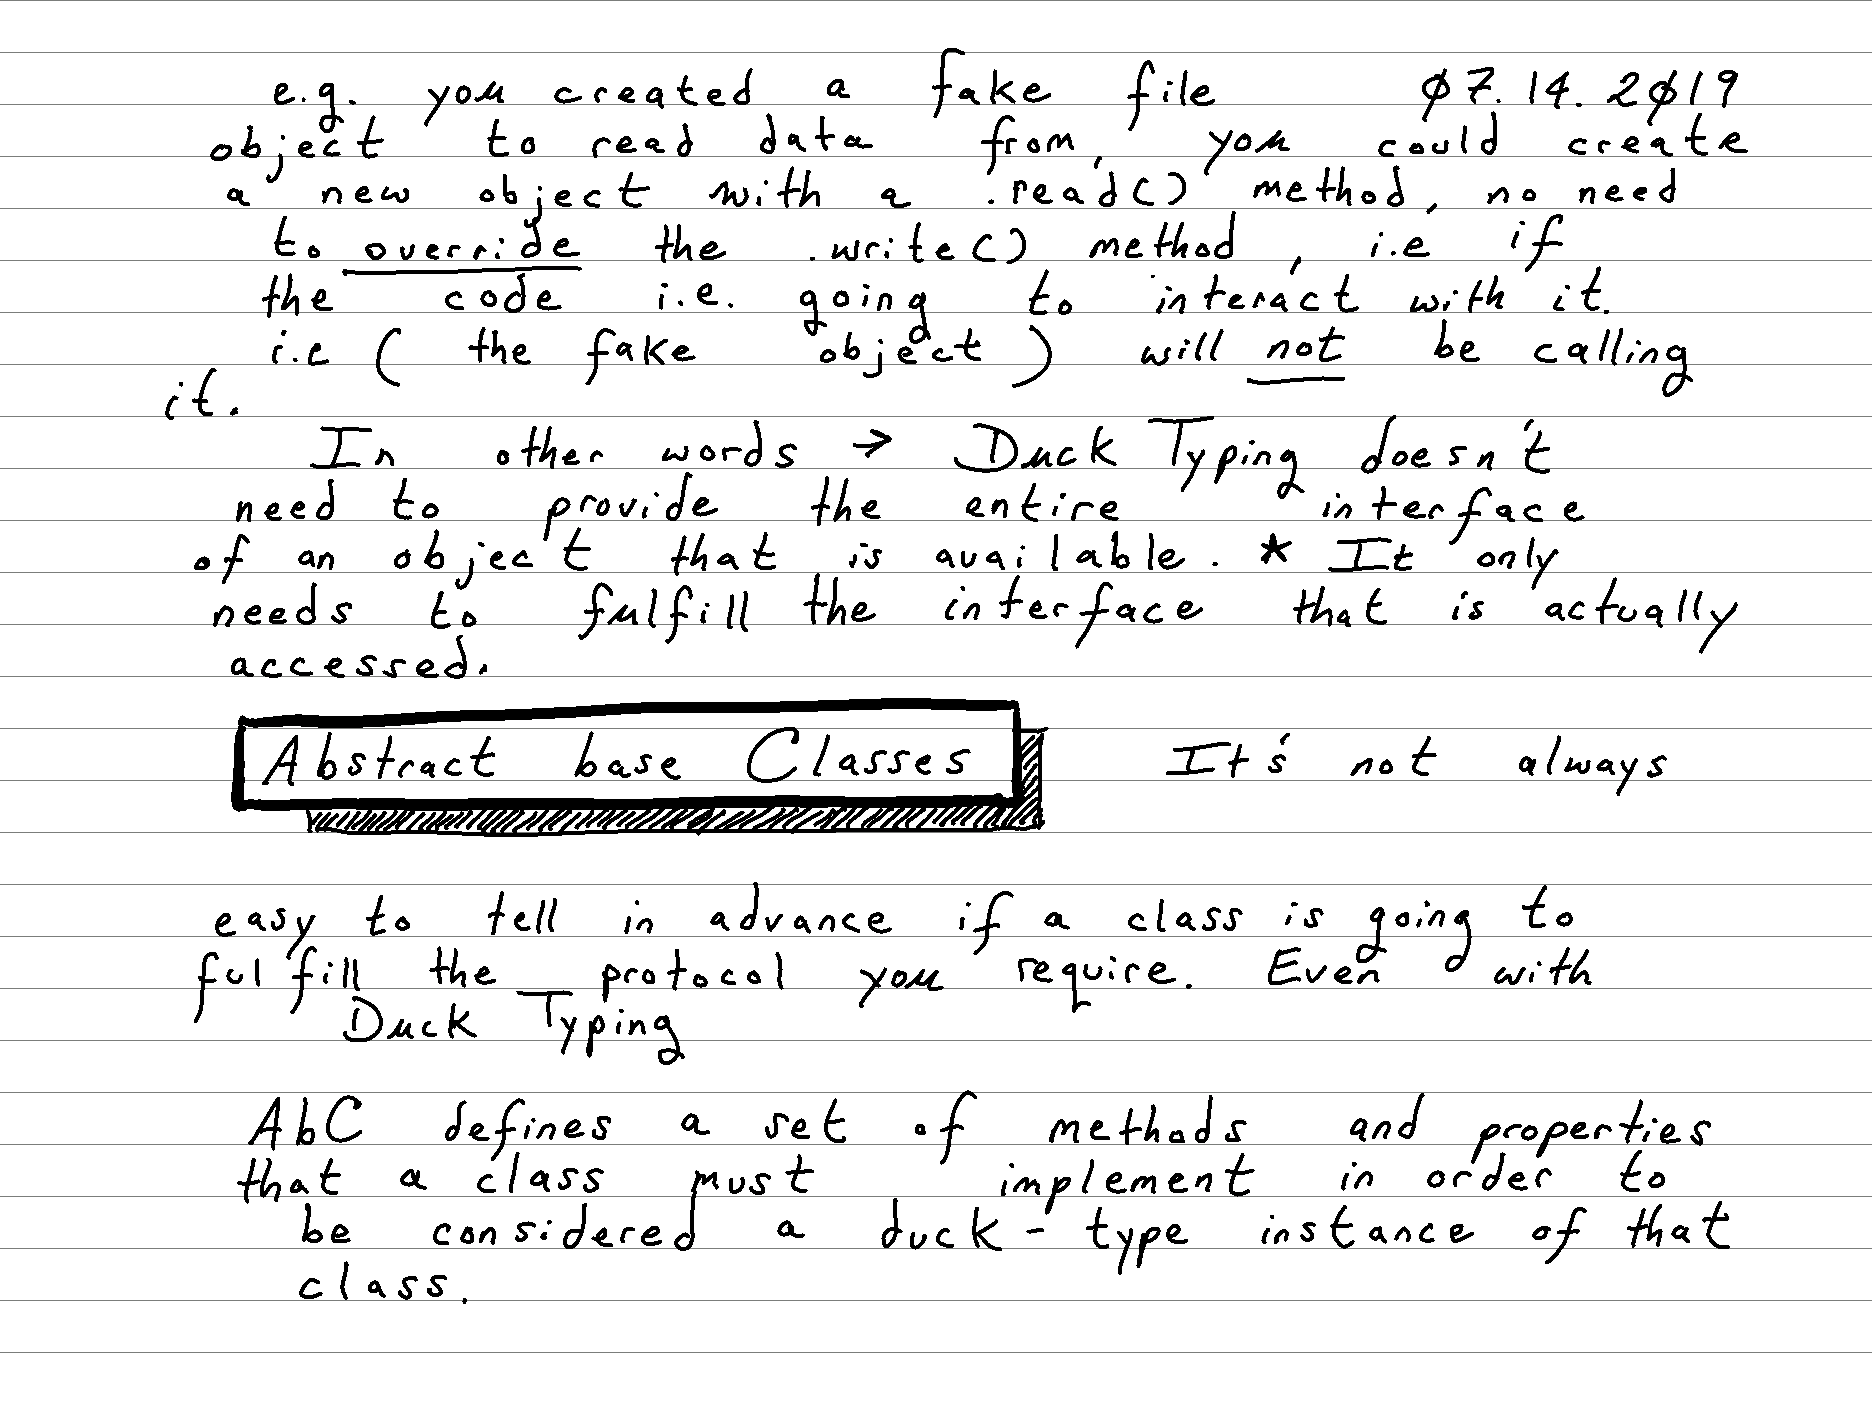 e.g. you created a fake file 07.14.2019
object to read data from, you could create
a new object with a .read() method, no need
to override the .write() method, i.e if
the code i.e. going to interact with it.
i.e ( the fake object ) will not be calling
it.
In other words → Duck Typing doesn't
need to provide the entire interface
of an object that is available. * It only
needs to fulfill the interface that is actually
accessed.
Abstract base Classes It's not always
easy to tell in advance if a class is going to
fulfill the protocol you require. Even with
Duck Typing
AbC defines a set of methods and properties
that a class must implement in order to
be considered a duck-type instance of that
class.